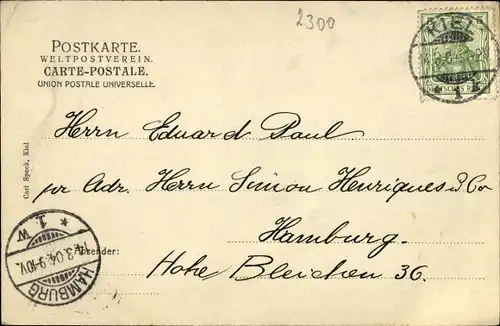 2300
POSTKARTE.
WELTPOSTVEREIN.
CARTE-POSTALE.
UNION POSTALE UNIVERSELLE.
KIEL
* 1 1
DEUTSCHES
Herrn Eduard Paul
pr Adr. Herrn Simon Henriques & Co
Hamburg.
Hohe Bleichen 36.
Absender:
Carl Speck, Kiel
* 1. W
14.3.04.9-10V.
HAMBURG